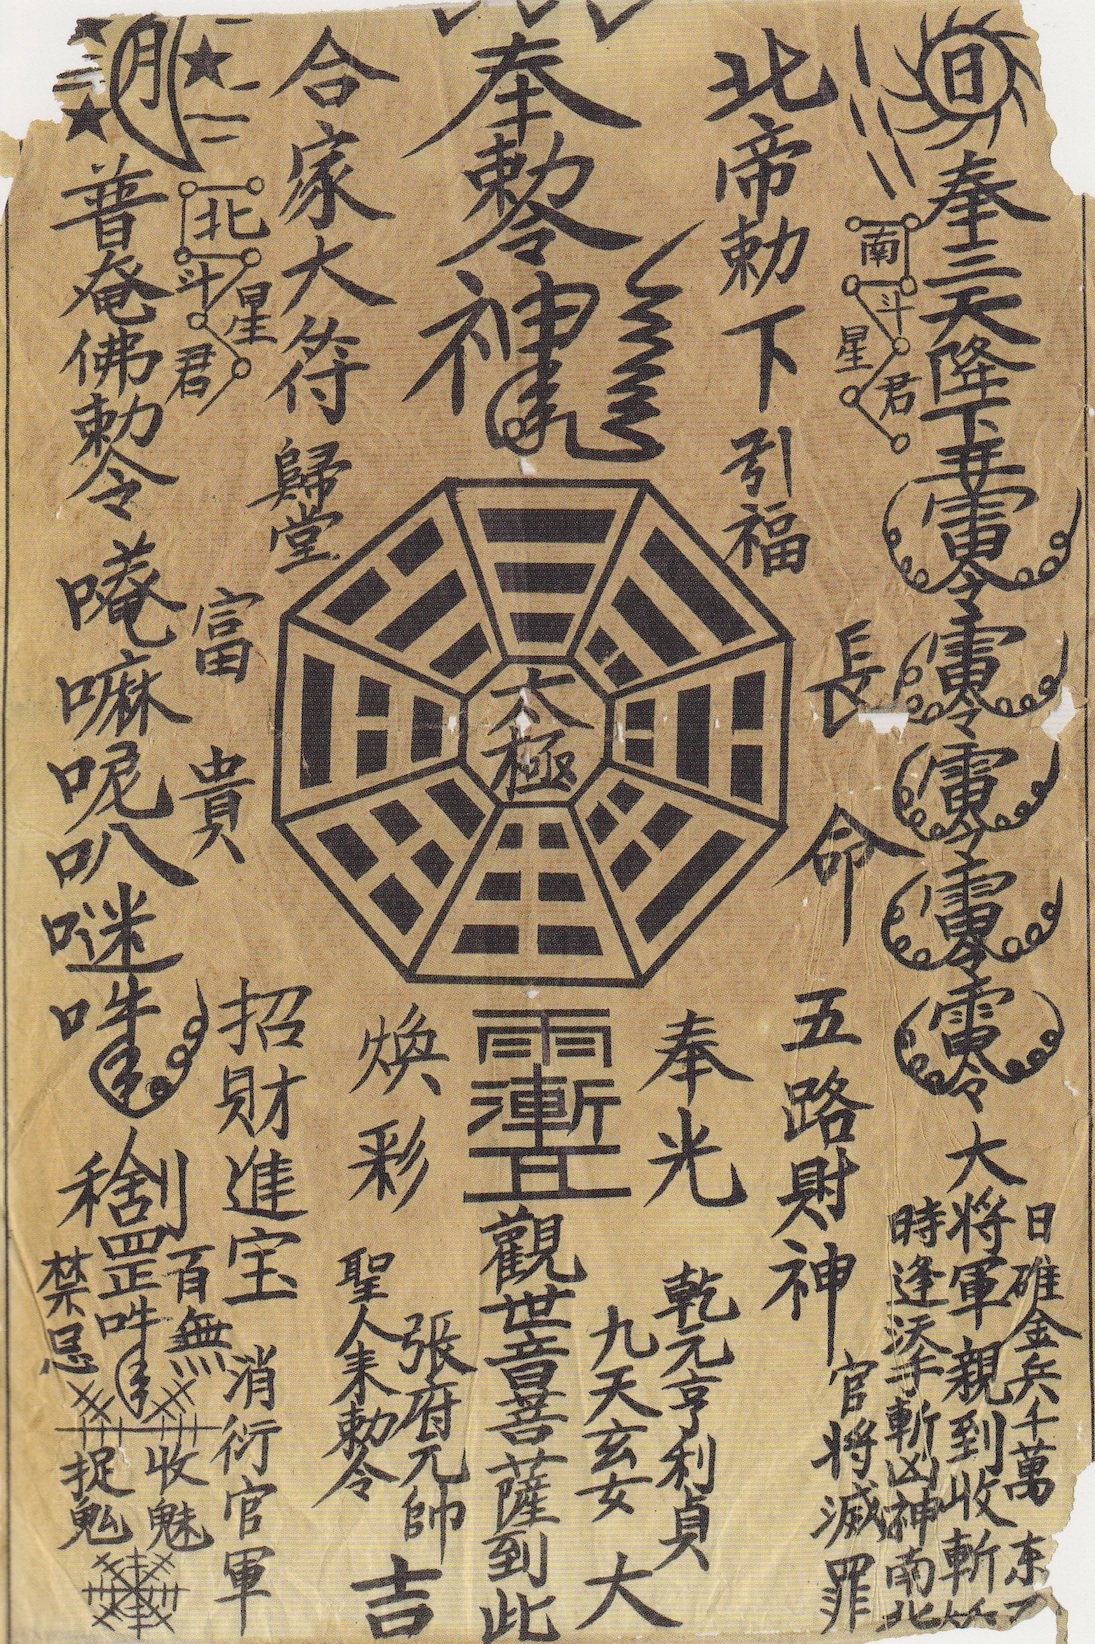 日
奉三天陞下
大將軍親到收斬
日
金兵千萬
時逢
手斬凶神南北
南斗星君
北帝勅下引福
長命
五路財神
官將滅罪
奉勅令
神
太極
奉光
煥彩
觀世音菩薩到此
乾元亨利貞
九天玄女
大吉
張府元帥
聖人來勅令
合家大符歸堂
富貴
招財進宝
消衍官軍
月
北斗星君
普奄佛勅令
唵嘛呢叭
罡
百無禁忌
收魅
捉鬼